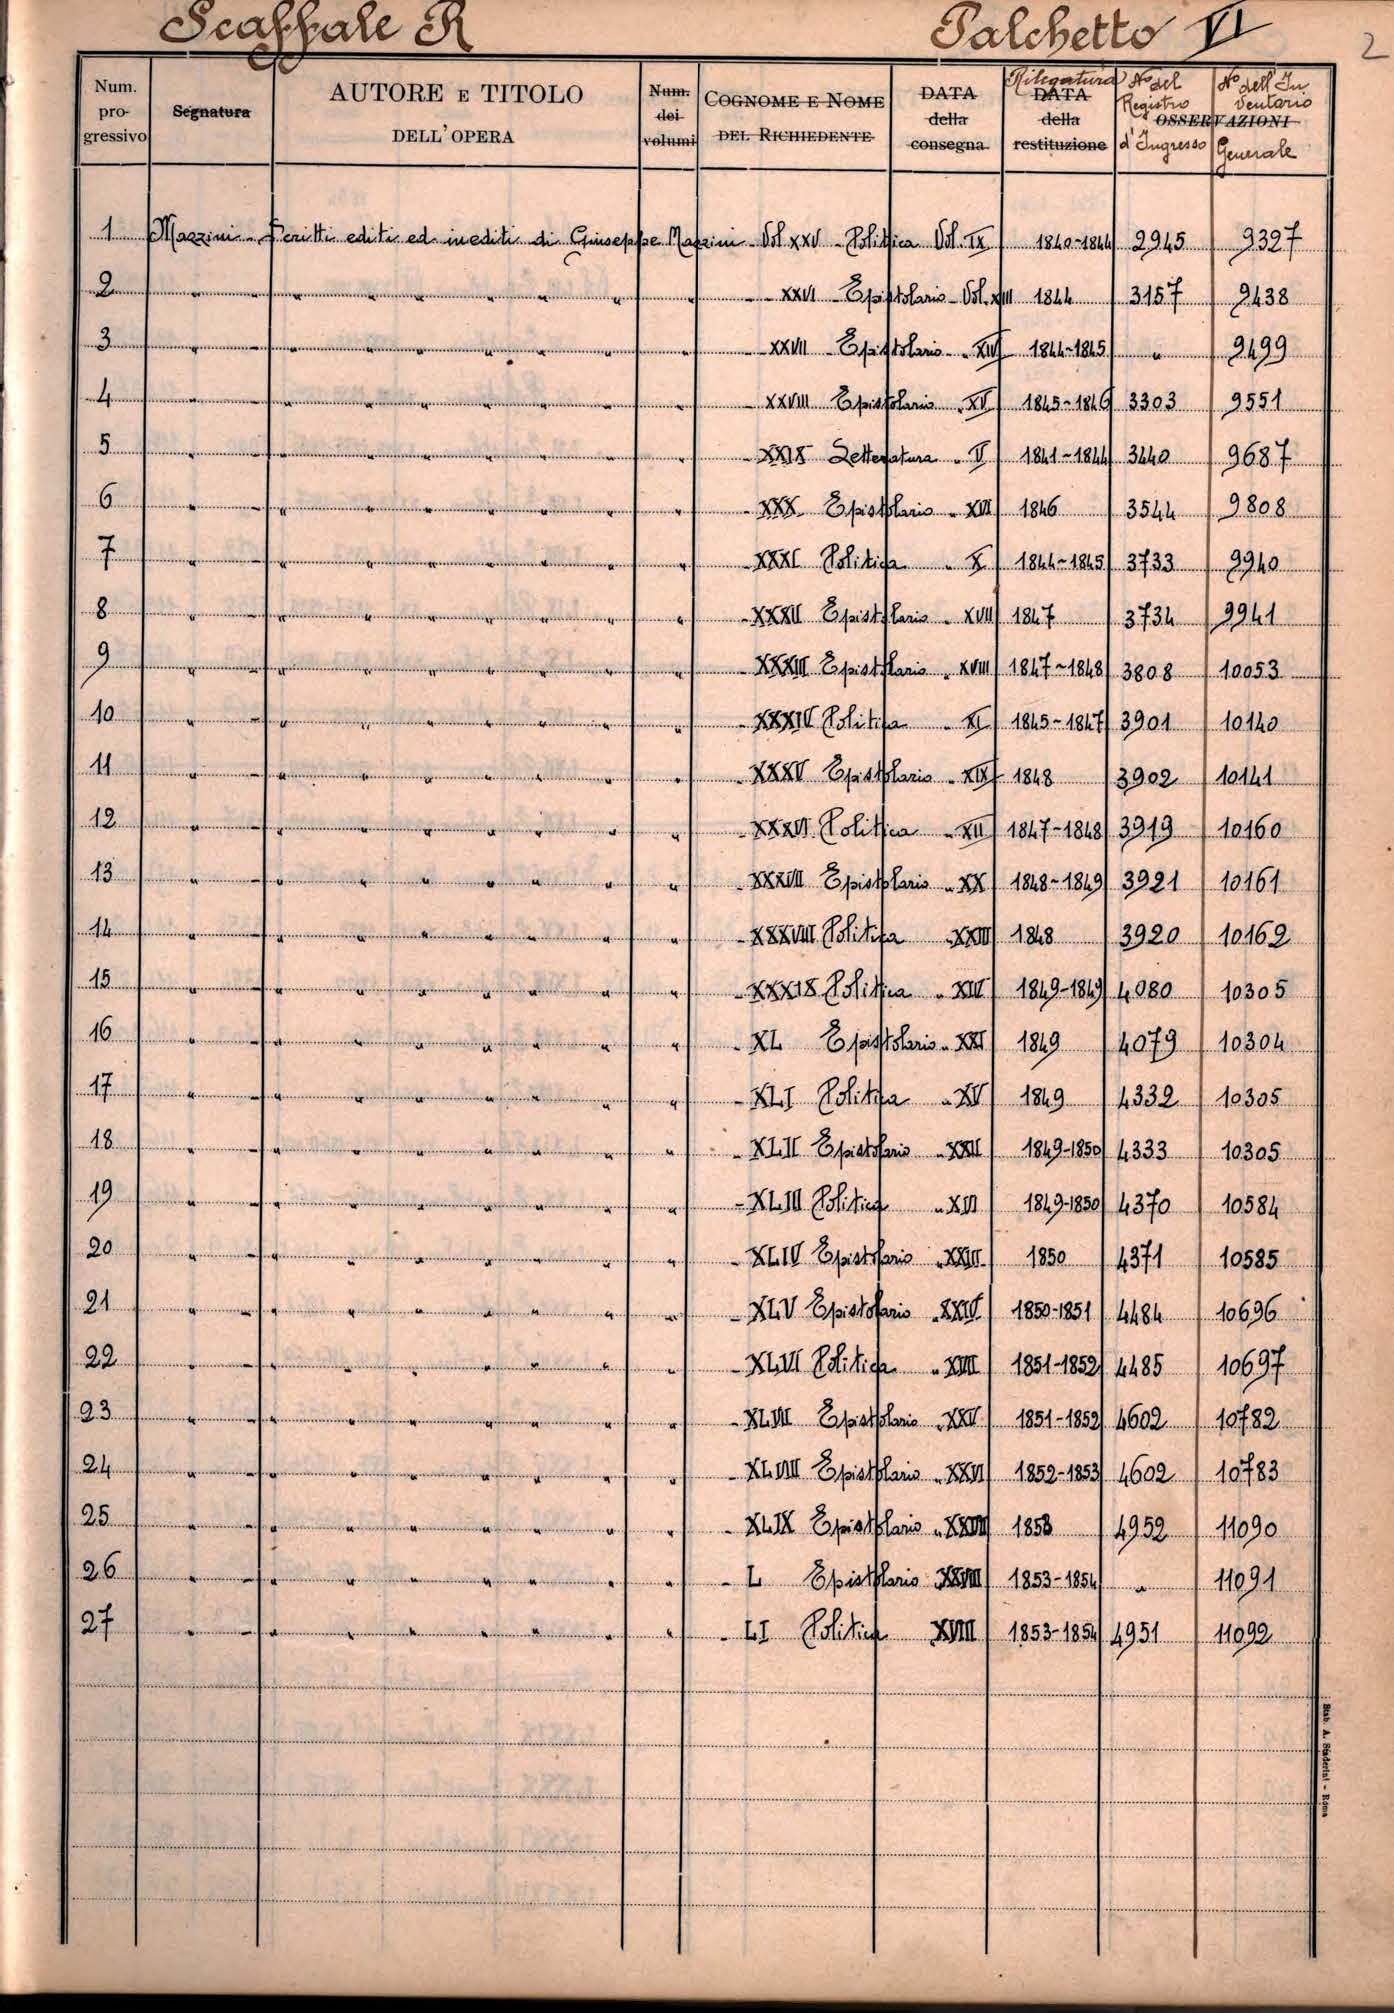 Scaffale R Palchetto VI 2
Num. progressivo Segnatura AUTORE E TITOLO DELL'OPERA Num. dei volumi COGNOME E NOME DEL RICHIEDENTE DATA della consegna Rilegatura DATA della restituzione Nº del Registro d'Ingresso OSSERVAZIONI Nº dell'Inventario Generale
1 Mazzini - Scritti editi ed inediti di Giuseppe Mazzini - Vol XXV - Politica Vol. IX 1840-1844 2945 9327
2 " - " " " " " " " - XXVI - Epistolario - Vol. XIII 1844 3157 9438
3 " - " " " " " " " - XXVII - Epistolario " XIV 1844-1845 " 9499
4 " - " " " " " " " - XXVIII Epistolario " XV 1845-1846 3303 9551
5 " - " " " " " " " - XXIX Letteratura " V 1841-1844 3440 9687
6 " - " " " " " " " - XXX Epistolario " XVI 1846 3544 9808
7 " - " " " " " " " - XXXI Politica " X 1844-1845 3733 9940
8 " - " " " " " " " - XXXII Epistolario " XVII 1847 3734 9941
9 " - " " " " " " " - XXXIII Epistolario " XVIII 1847-1848 3808 10053
10 " - " " " " " " " - XXXIV Politica " XI 1845-1847 3901 10140
11 " - " " " " " " " - XXXV Epistolario " XIX 1848 3902 10141
12 " - " " " " " " " - XXXVI Politica " XII 1847-1848 3919 10160
13 " - " " " " " " " - XXXVII Epistolario " XX 1848-1849 3921 10161
14 " - " " " " " " " - XXXVIII Politica " XXIII 1848 3920 10162
15 " - " " " " " " " - XXXIX Politica " XIV 1849-1849 4080 10305
16 " - " " " " " " " - XL Epistolario " XXI 1849 4079 10304
17 " - " " " " " " " - XLI Politica " XV 1849 4332 10305
18 " - " " " " " " " - XLII Epistolario " XXII 1849-1850 4333 10305
19 " - " " " " " " " - XLIII Politica " XVI 1849-1850 4370 10584
20 " - " " " " " " " - XLIV Epistolario " XXIII 1850 4371 10585
21 " - " " " " " " " - XLV Epistolario " XXIV 1850-1851 4484 10696
22 " - " " " " " " " - XLVI Politica " XVII 1851-1852 4485 10697
23 " - " " " " " " " - XLVII Epistolario " XXV 1851-1852 4602 10782
24 " - " " " " " " " - XLVIII Epistolario " XXVI 1852-1853 4602 10783
25 " - " " " " " " " - XLIX Epistolario " XXVII 1853 4952 11090
26 " - " " " " " " " - L Epistolario " XXVIII 1853-1854 " 11091
27 " - " " " " " " " - LI Politica XVIII 1853-1854 4951 11092
Stab. A. Staderini - Roma